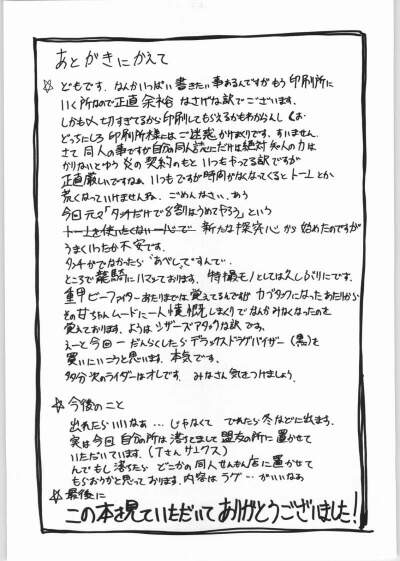 あとがきにかえて
☆ どもです。なんかいっぱい書きたい事あるんですがもう印刷所に
いく所なので正直余裕なさげな訳でございます。
しかも〆切すぎてるから印刷してもらえるかもわからんし
どっちにしろ印刷所様にはご迷惑かけまくりです。すいません。
さて同人の事ですが自分の同人誌にだけは絶対知人の力は
かりないとゆう炎の契約のもといつもやってる訳ですが
正直厳しいですねぇ いつもですが時間がなくなってくるとトーンとか
荒くなっていけませんね。ごめんなさい。あう
今回元々「タッチだけで8割はうめてやろう」という
トーンを使いたくない一心で 新たな探究心から始めたのですが
うまくいったか不安です。
タッチがでなかったら
ところで龍騎にハマっております。特撮モノとしては久しぶりにです。
重甲ビーファイターあたりまでは覚えてるんですが カブタックになったあたりから
その甘ちゃんムードに一人憤慨しまくりでなんかみなくなったのを
覚えております。ようはシザースアタックな訳です。
えーと今回一だんらくしたらデラックスドラグバイザー(黒)を
買いにいこうと思います。本気です。
多分次のライダーはオレです。みなさん気をつけましょう。
☆ 今後のこと
出れたらいいなぁ…じゃなくて でれたら冬などに出ます。
実は今回自分の所は落ちてまして盟友の所に置かせて
いただいています。(Tさんサンクス)
んでもし落ちたらどこかの同人せんもん店に置かせて
もらおうかと思っております。内容はラグ…がいいなぁ
☆ 最後に
この本を見ていただいてありがとうございました!